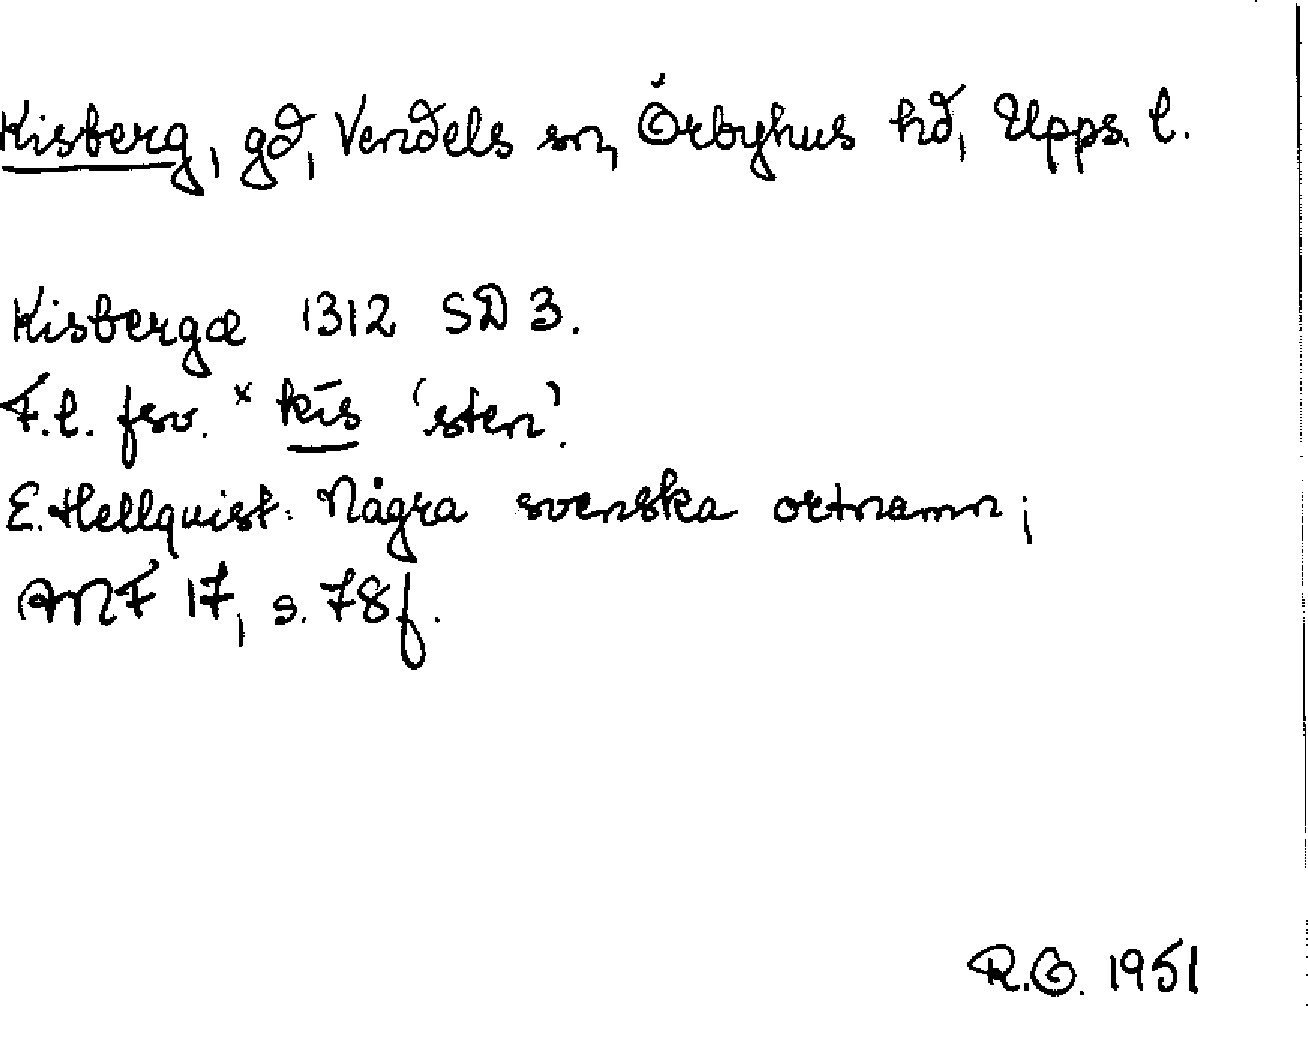 Kisberg, gd, Vendels sn, Örbyhus hd, Upps. l.
Kisbergæ 1312 SD 3.
F.l. fsv. × kīs ‘sten’.
E. Hellquist: Några svenska ortnamn;
ANF 17, s. 78f.
R.O. 1951